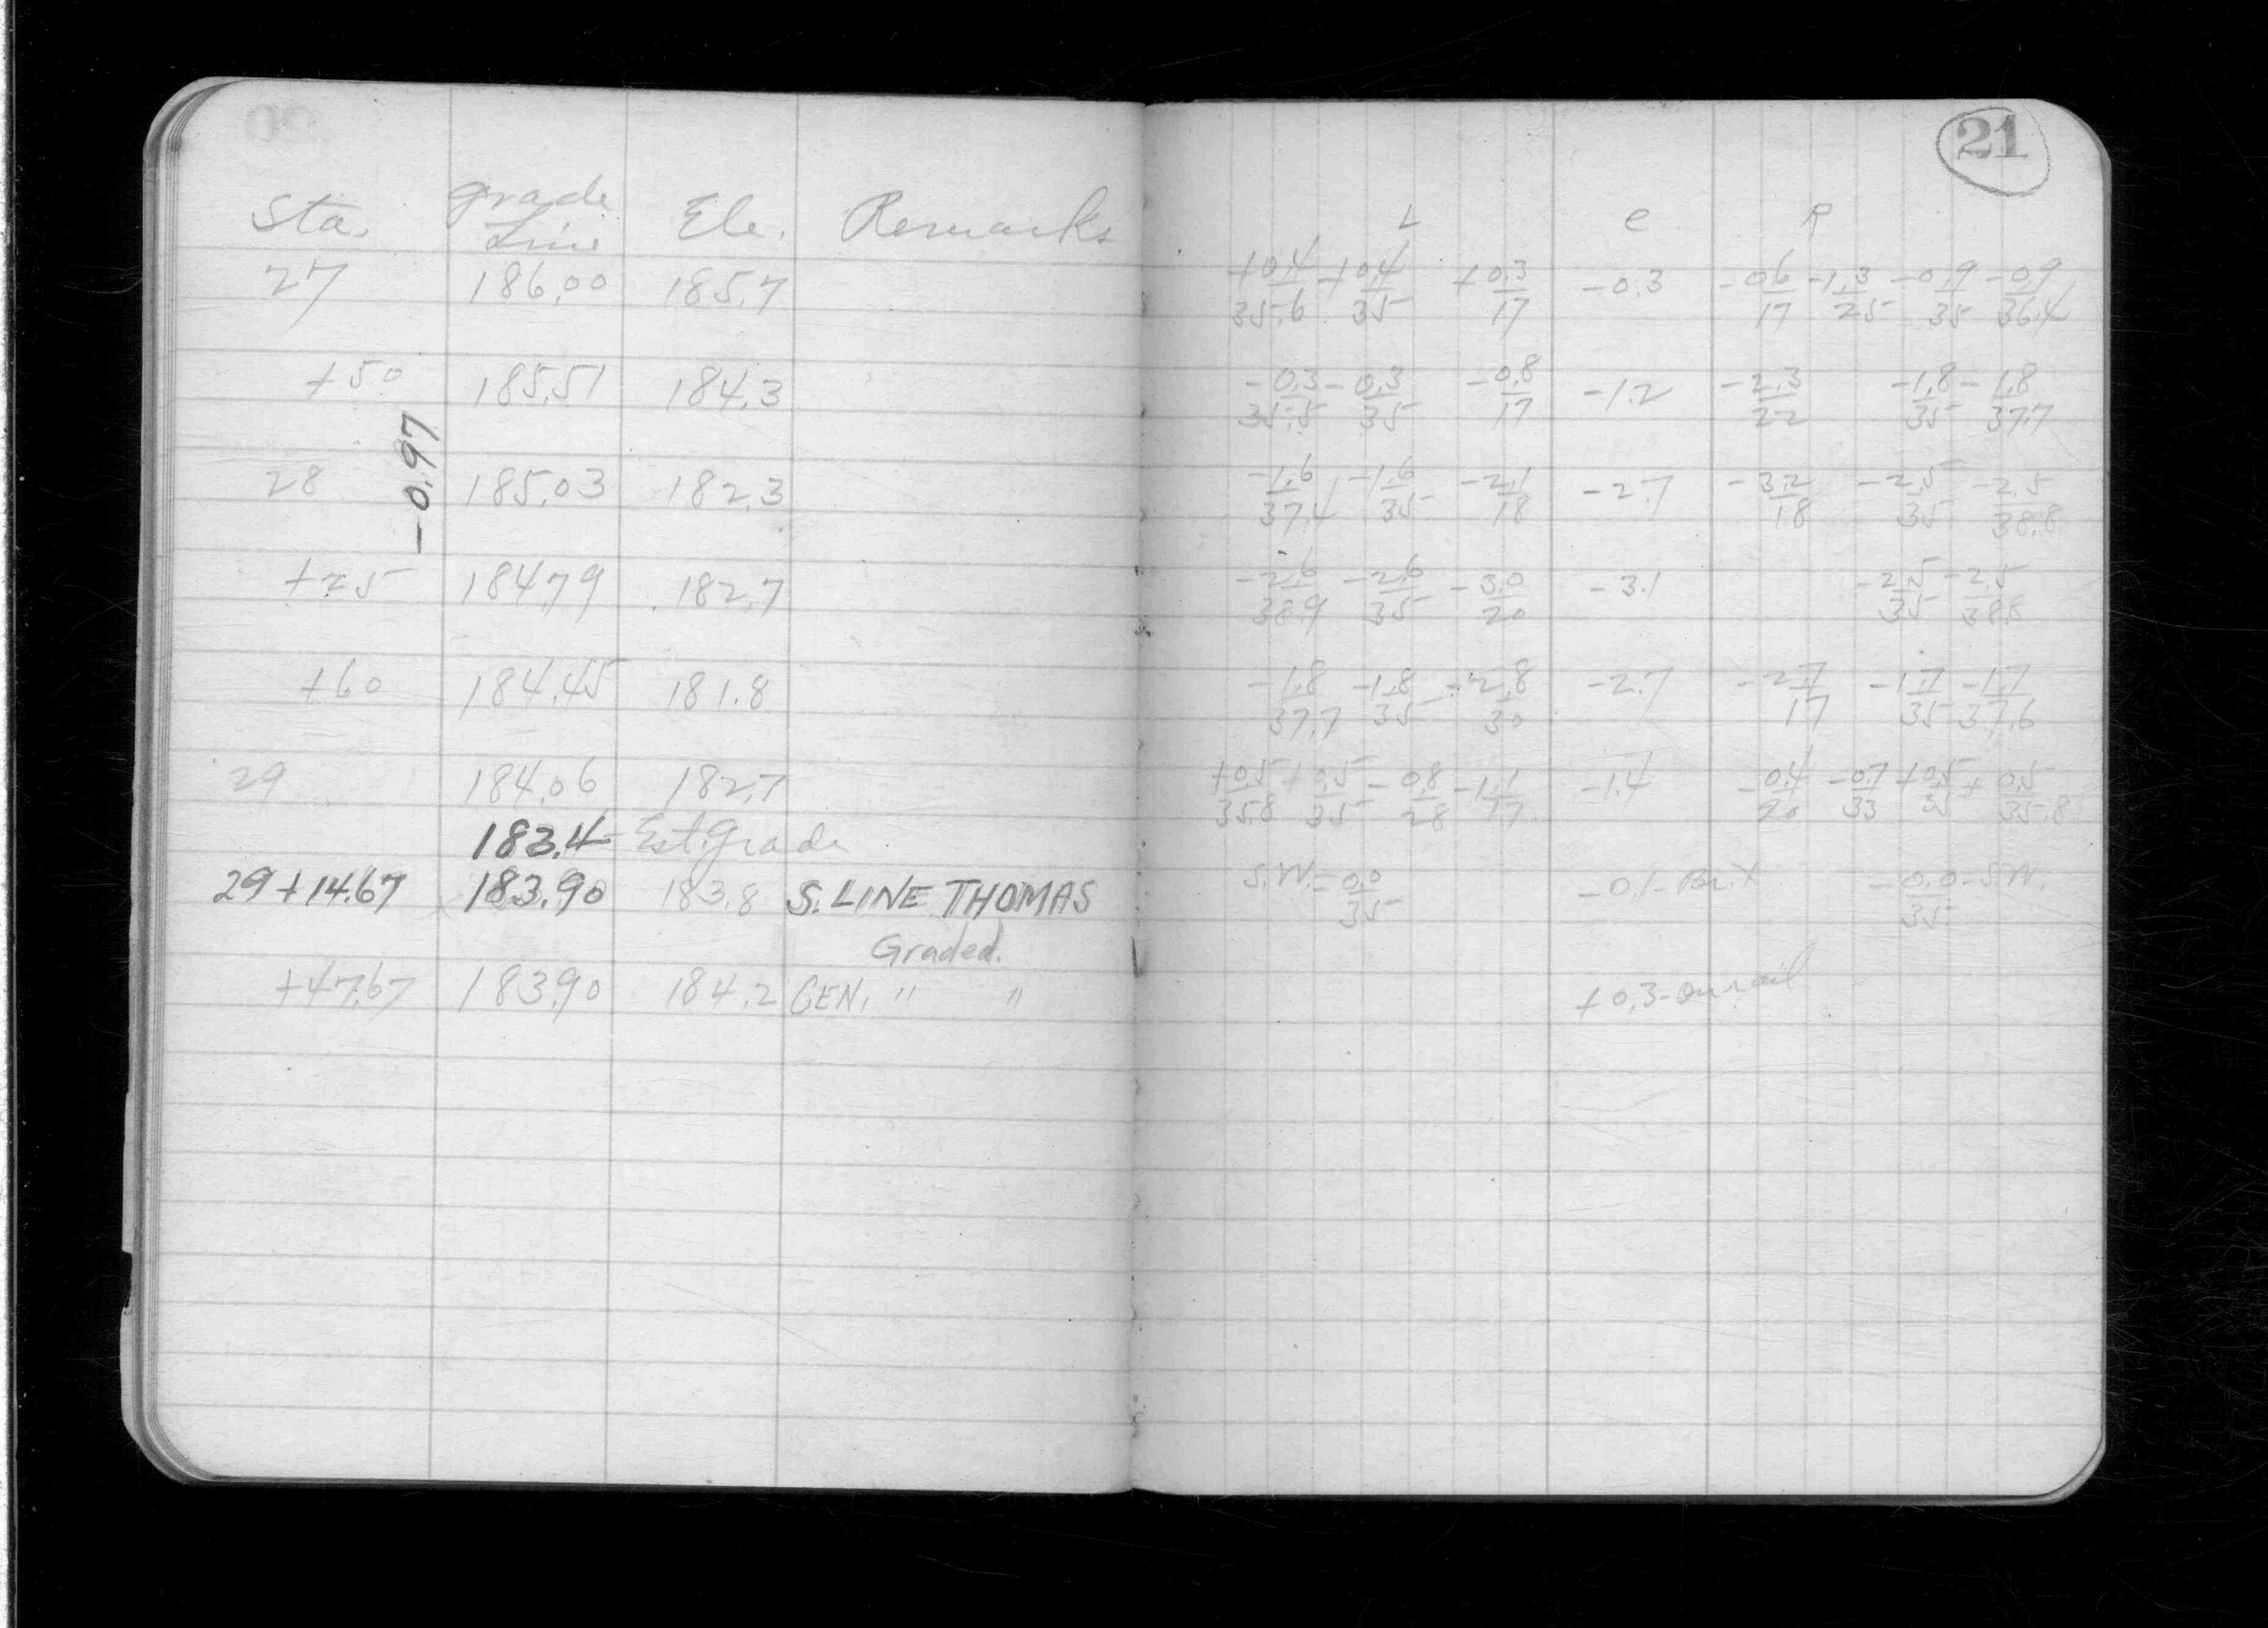 21
Sta. grade Line Ele. Remarks L e R
27 186.00 185.7 +0.4/35.6 +0.4/35 +0.3/17 -0.3 -0.6/17 -1.3/25 -0.9/35 -0.9/36.4
+50 185.51 184.3 -0.3/35.5 -0.3/35 -0.8/17 -1.2 -2.3/22 -1.8/35 -1.8/37.7
-0.97
28 185.03 182.3 -1.6/37.4 -1.6/35 -2.1/18 -2.7 -3.2/18 -2.5/35 -2.5/38.8
+25 184.79 182.7 -2.6/38.9 -2.6/35 -3.0/20 -3.1 -2.5/35 -2.5/38.8
+60 184.45 181.8 -1.8/37.7 -1.8/35 -2.8/30 -2.7 -2.7/17 -1.7/35 -1.7/37.6
29 184.06 182.7 +0.5/35.8 +0.5/35 -0.8/28 -1.1/17 -1.4 -0.4/20 -0.7/33 +0.5/35 +0.5/35.8
183.4 - Est. grade
29+14.67 183.90 183.8 S. LINE THOMAS S.W. - 0.0/35 -0.1 - Br.X -0.0/35 - S.W.
Graded.
+47.67 183.90 184.2 CEN. " " +0.3 - on rail